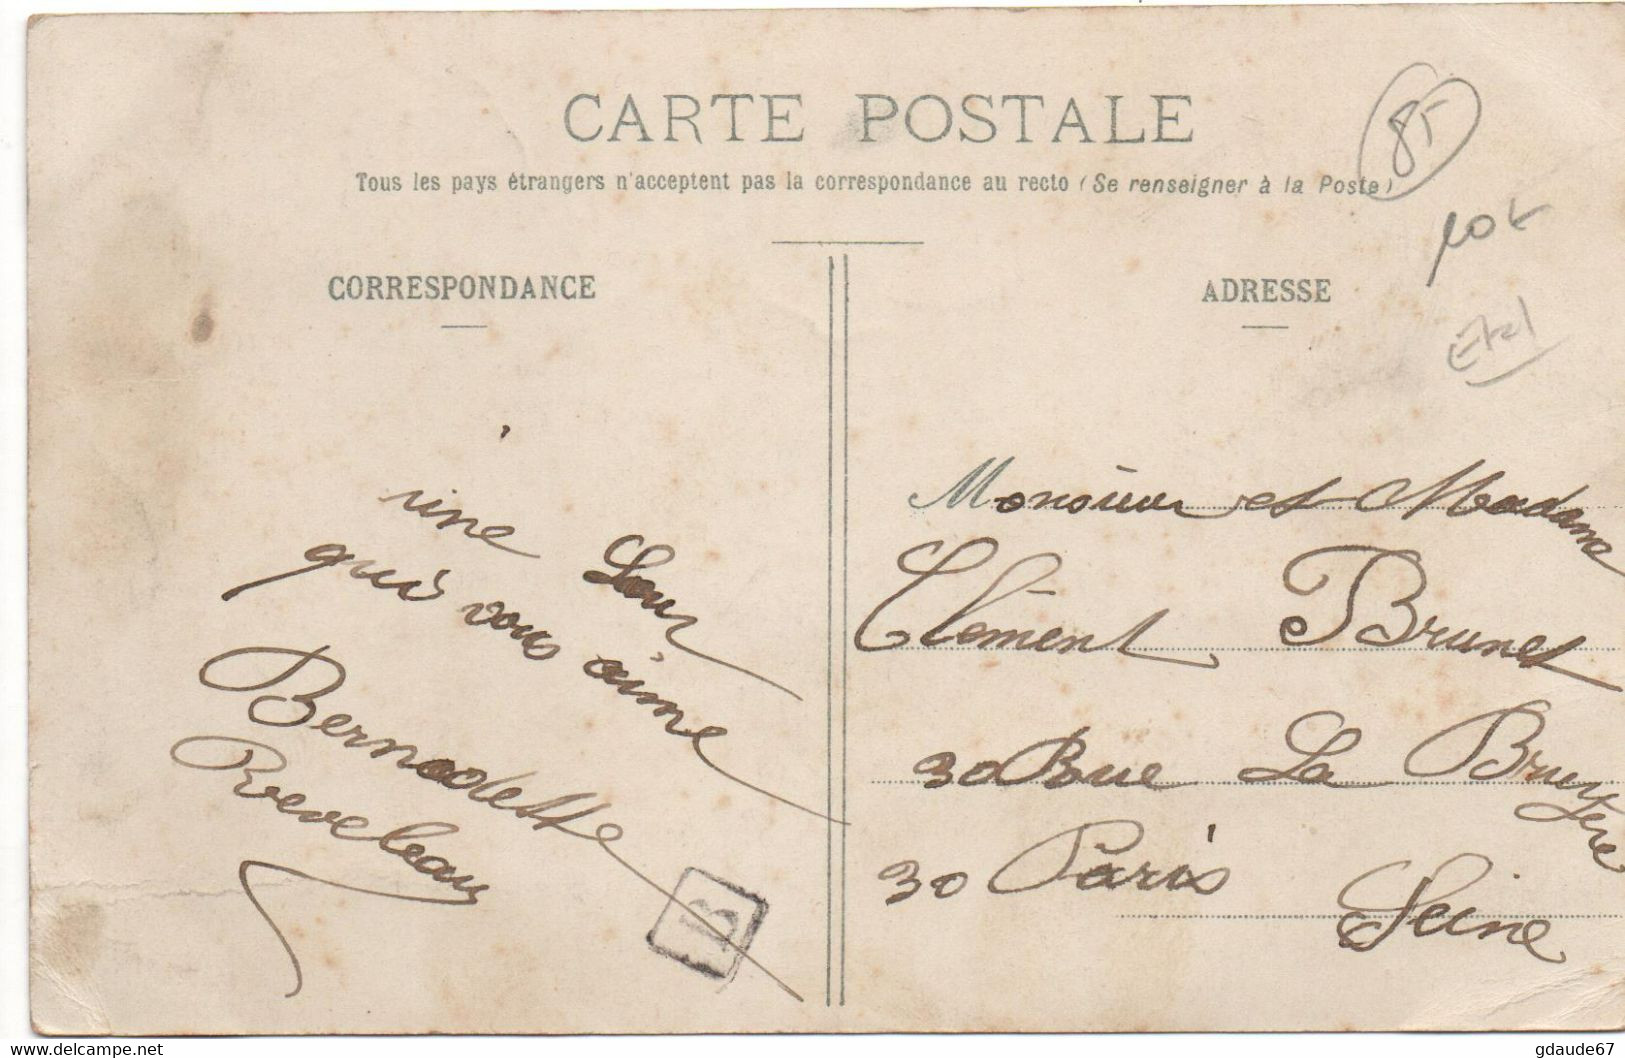 CARTE POSTALE
Tous les pays étrangers n'acceptent pas la correspondance au recto (Se renseigner à la Poste)
85
CORRESPONDANCE
ADRESSE
une
qui vous aime
Bernadette
Reveleau
B
Monsieur et Madame
Clément Brunet
30 Rue La Bruyère
30 Paris
Seine
www.delcampe.net
gdaude67